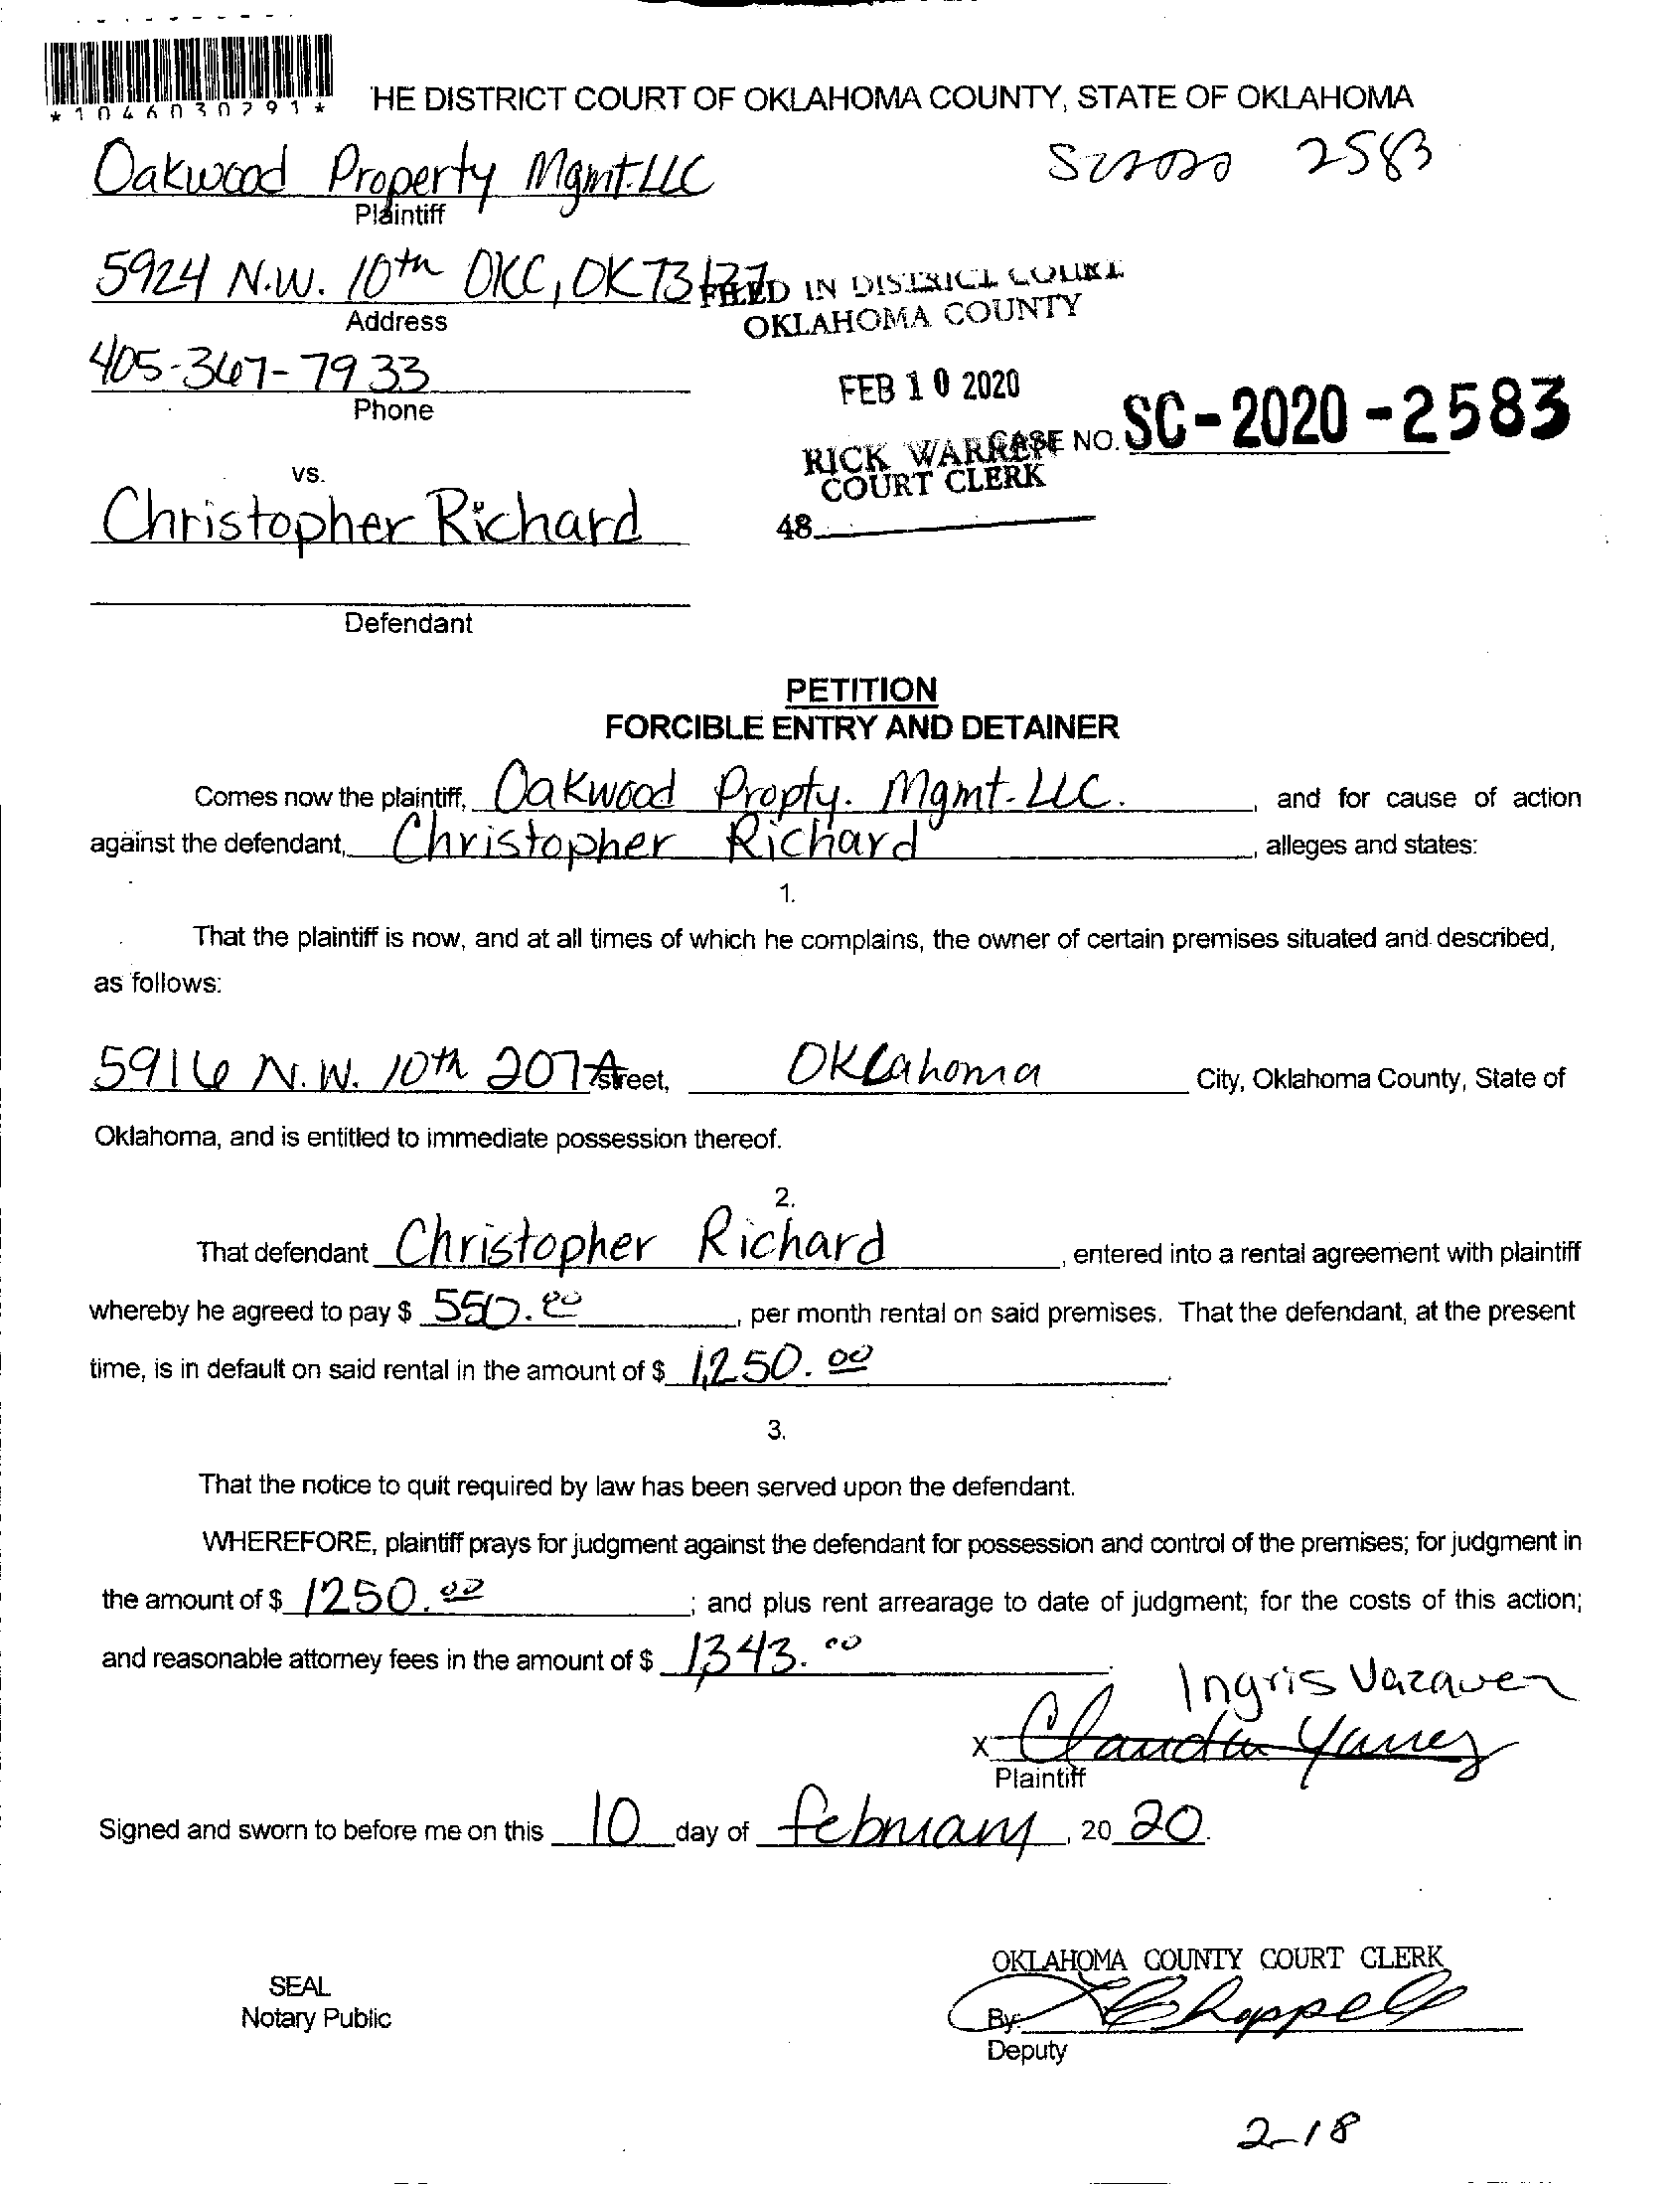 *1046030791*
HE DISTRICT COURT OF OKLAHOMA COUNTY, STATE OF OKLAHOMA
Oakwood Property Mgmt. LLC
2583
Plaintiff
5924 N.W. 10th OKC, OK 73127
FILED IN DISTRICT COURT
OKLAHOMA COUNTY
Address
405-367-7933
FEB 10 2020
Phone
CASE NO. SC-2020-2583
RICK WARREN
COURT CLERK
vs.
Christopher Richard
48
Defendant
PETITION
FORCIBLE ENTRY AND DETAINER
Comes now the plaintiff, Oakwood Propty. Mgmt. LLC. , and for cause of action
against the defendant, Christopher Richard , alleges and states:
1.
That the plaintiff is now, and at all times of which he complains, the owner of certain premises situated and described,
as follows:
5916 N.W. 10th 207A Street, Oklahoma City, Oklahoma County, State of
Oklahoma, and is entitled to immediate possession thereof.
2.
That defendant Christopher Richard , entered into a rental agreement with plaintiff
whereby he agreed to pay $ 550.00 , per month rental on said premises. That the defendant, at the present
time, is in default on said rental in the amount of $ 1,250.00 .
3.
That the notice to quit required by law has been served upon the defendant.
WHEREFORE, plaintiff prays for judgment against the defendant for possession and control of the premises; for judgment in
the amount of $ 1250.00 ; and plus rent arrearage to date of judgment; for the costs of this action;
and reasonable attorney fees in the amount of $ 1,343.00 .
Ingris
X Claudia Yanez
Plaintiff
Signed and sworn to before me on this 10 day of february , 20 20.
OKLAHOMA COUNTY COURT CLERK
SEAL
Notary Public
By: Chappell
Deputy
2-18